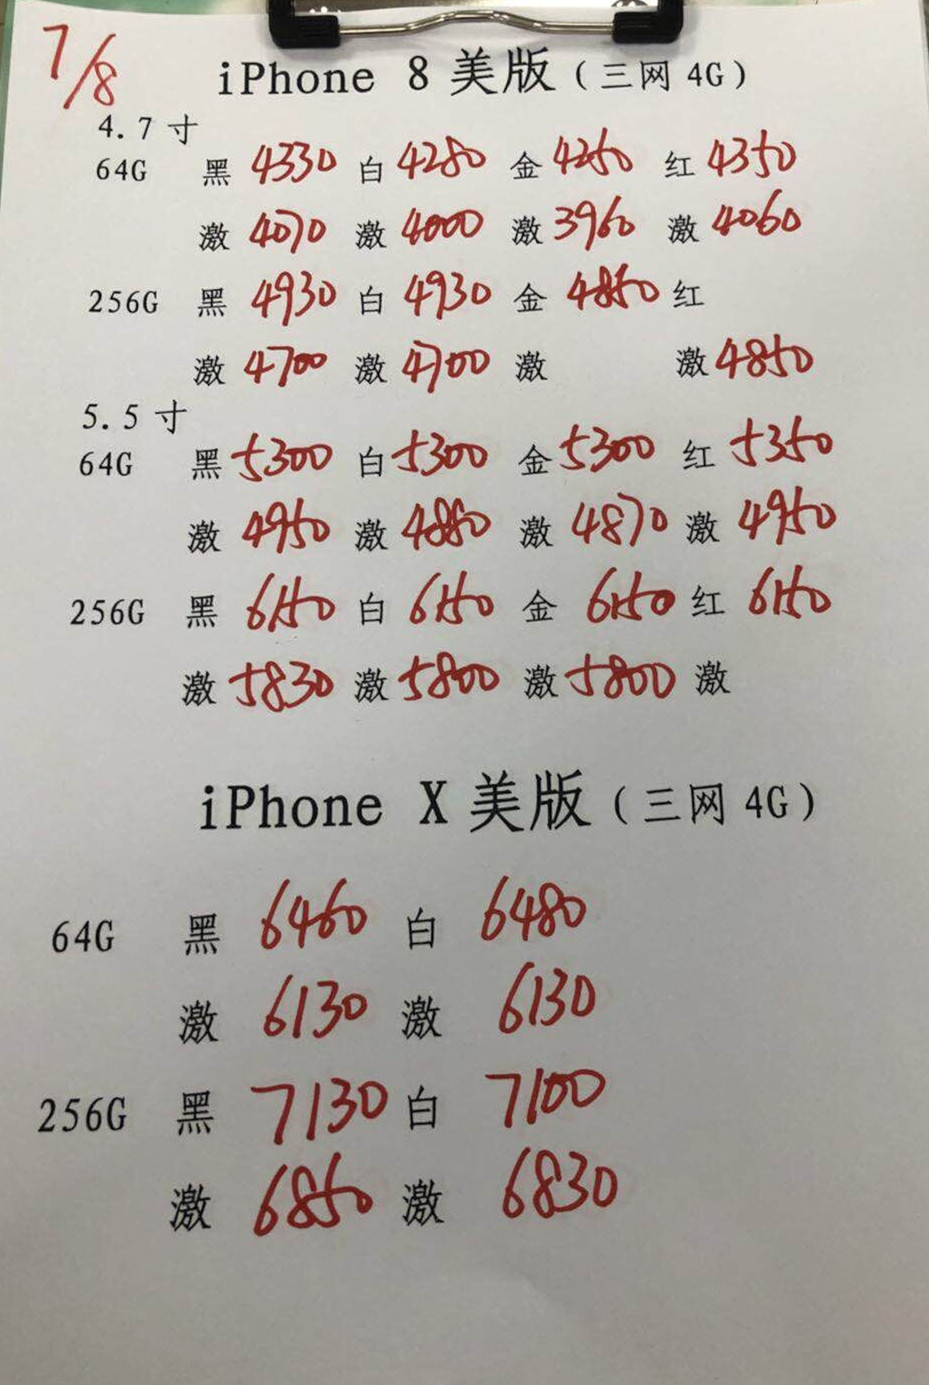 7/8
iPhone 8 美版（三网 4G）
4.7 寸
64G 黑 4330 白 4280 金 4250 红 4350
激 4070 激 4000 激 3960 激 4060
256G 黑 4930 白 4930 金 4850 红
激 4700 激 4700 激 激 4850
5.5 寸
64G 黑 5300 白 5300 金 5300 红 5350
激 4950 激 4880 激 4870 激 4950
256G 黑 6150 白 6150 金 6150 红 6150
激 5830 激 5800 激 5800 激
iPhone X 美版（三网 4G）
64G 黑 6460 白 6480
激 6130 激 6130
256G 黑 7130 白 7100
激 6850 激 6830